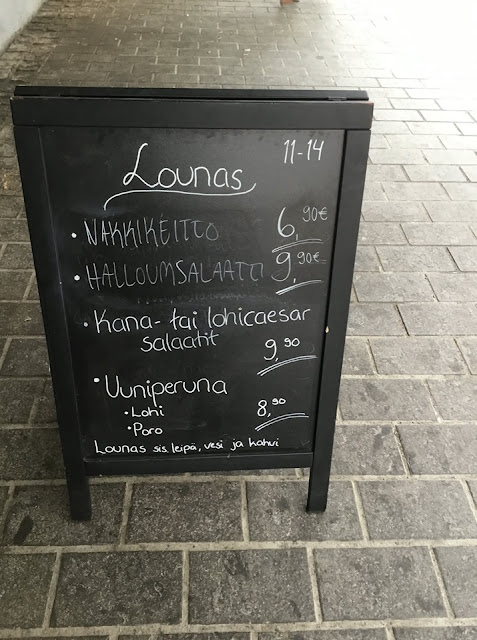 11-14
Lounas
• NAKKIKEITTO 6,90€
• HALLOUMSALAATTI 9,90€
• Kana- tai lohicaesar
salaatit
9,90
• Uuniperuna
• Lohi 8,90
• Poro
Lounas sis. leipä, vesi ja kahvi